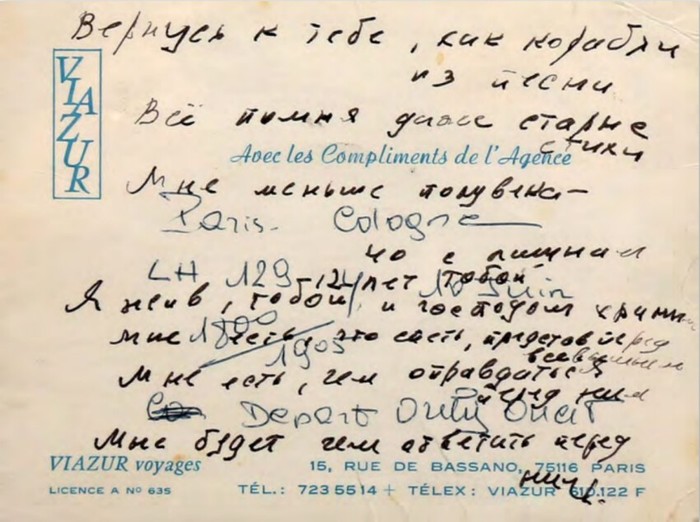 Вернусь к тебе, как корабли
из песни
VIAZUR
Всё помня даже старые
стихи
Avec les Compliments de l'Agence
Мне меньше полувека –
Paris. Cologne
40 с лишним
LH 129 12 лет тобой 10 Juin
Я жив, тобой и господом храним
1800
мне есть, что спеть, представ перед
1905 всевышним
Мне есть, чем оправдаться
перед ним
Depart Orly Ouest
Мне будет чем ответить перед
ним.
VIAZUR voyages 15, RUE DE BASSANO, 75116 PARIS
LICENCE A N° 635 TÉL.: 723 55 14 + TÉLEX: VIAZUR 610.122 F